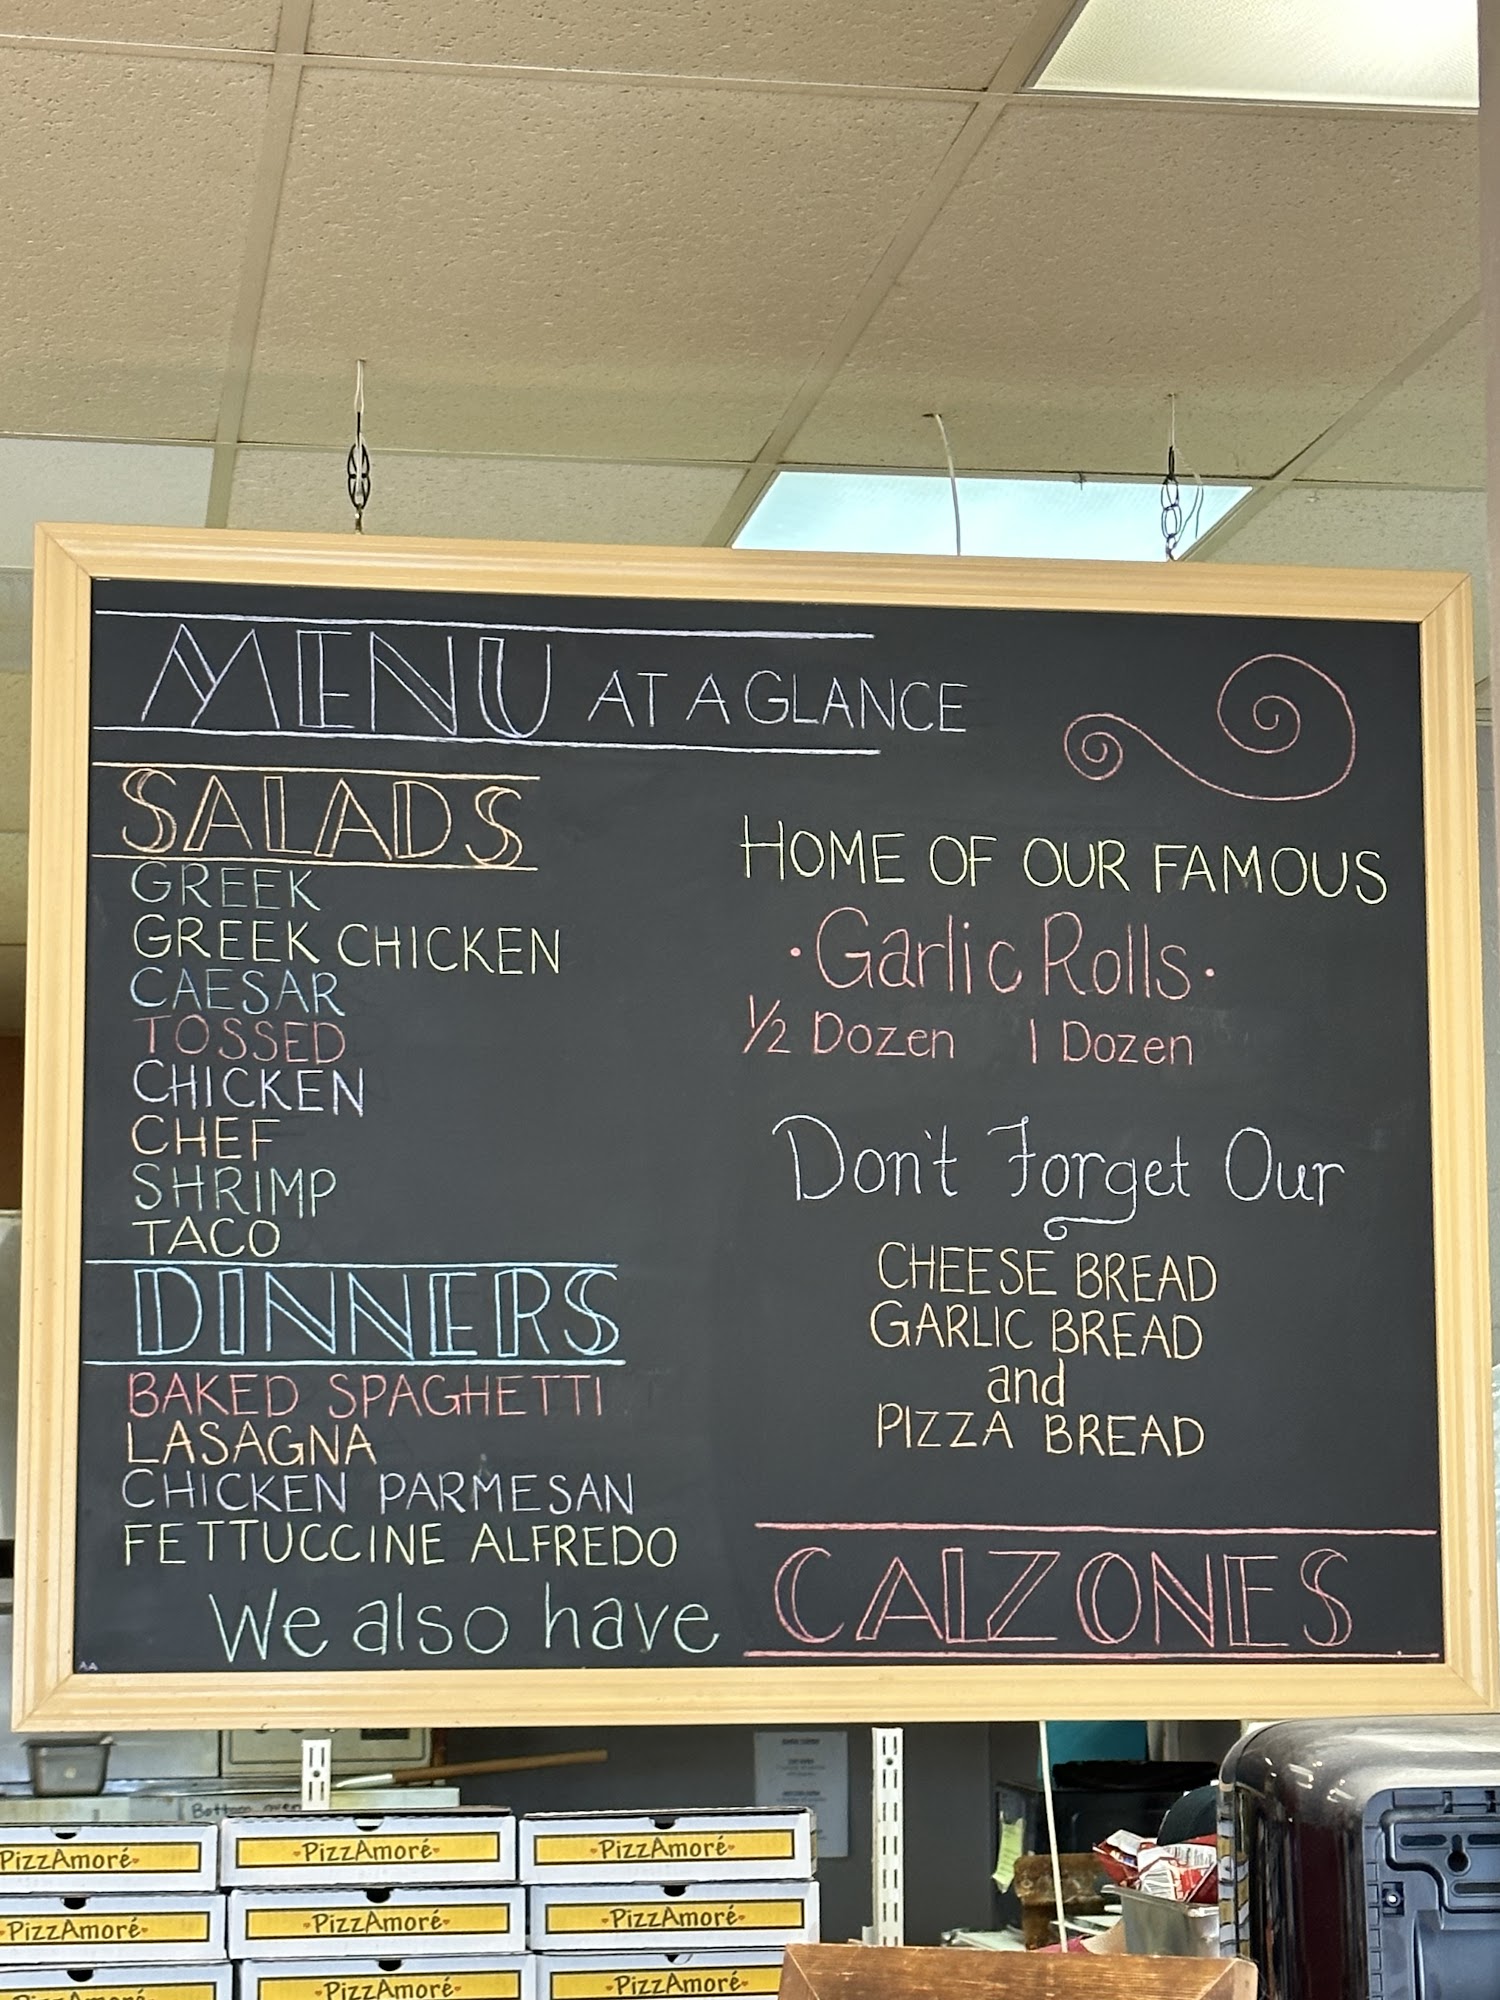 MENU AT A GLANCE
SALADS
GREEK
GREEK CHICKEN
CAESAR
TOSSED
CHICKEN
CHEF
SHRIMP
TACO
DINNERS
BAKED SPAGHETTI
LASAGNA
CHICKEN PARMESAN
FETTUCCINE ALFREDO
HOME OF OUR FAMOUS
·Garlic Rolls·
1/2 Dozen 1 Dozen
Don't Forget Our
CHEESE BREAD
GARLIC BREAD
and
PIZZA BREAD
We also have CALZONES
AA
Bottom oven
PizzAmoré
PizzAmoré
PizzAmoré
PizzAmoré
PizzAmoré
PizzAmoré
PizzAmoré
PizzAmoré